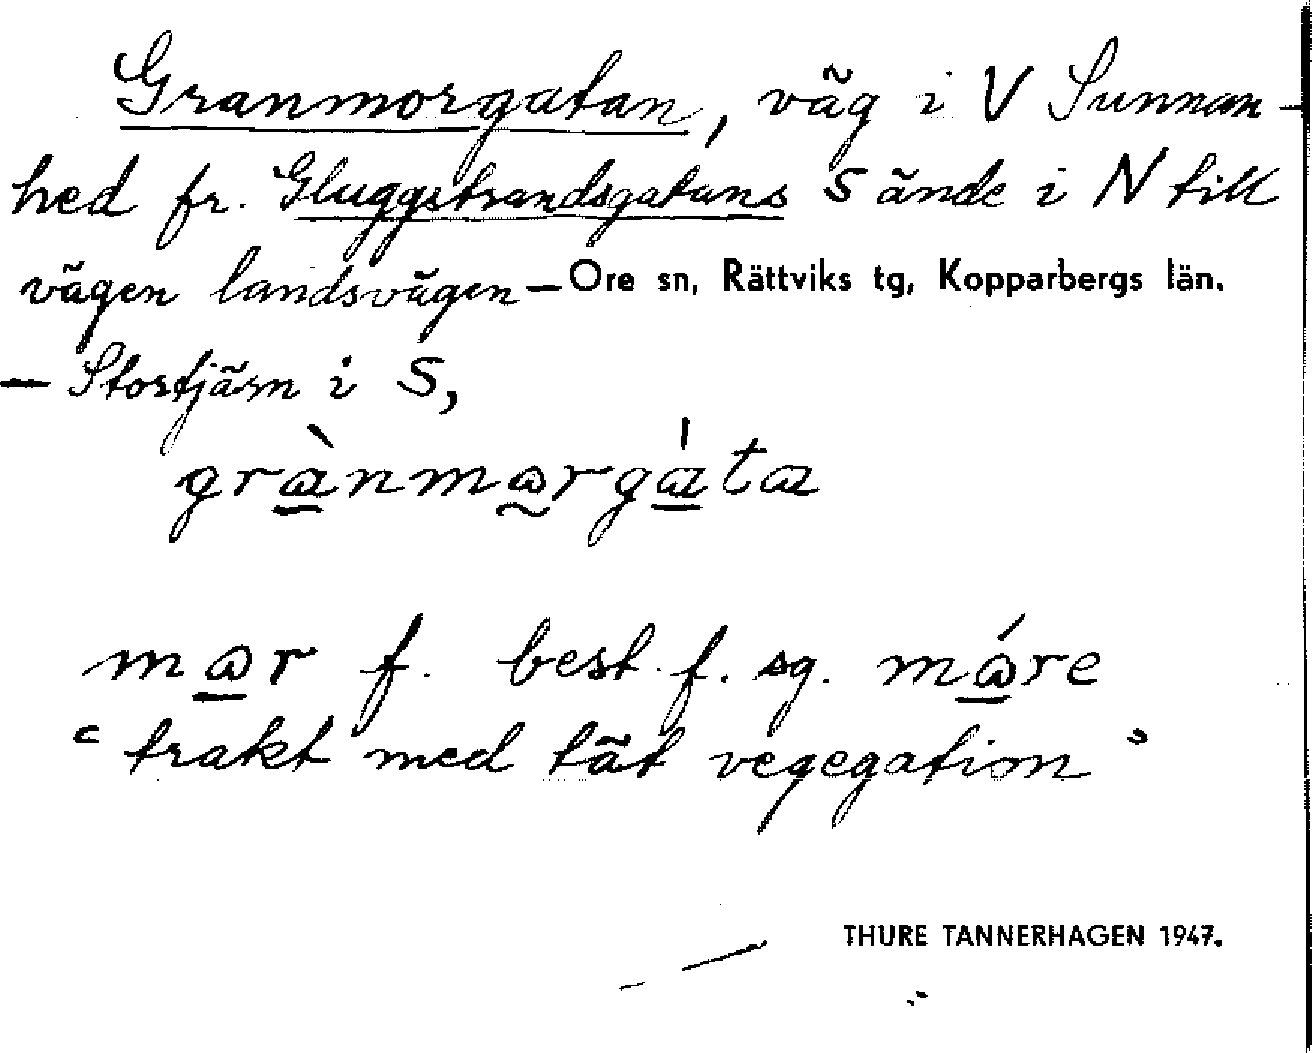 Granmorgatan, väg i V Sunnan-
hed fr. Gluggstrandsgatans S ände i N till
vägen landsvägen — Ore sn, Rättviks tg, Kopparbergs län.
— Stortjärn i S,
grànmɷrgáta
mɷr f. best. f. sg. mɷ́re
‘trakt med tät vegegation’
THURE TANNERHAGEN 1947.